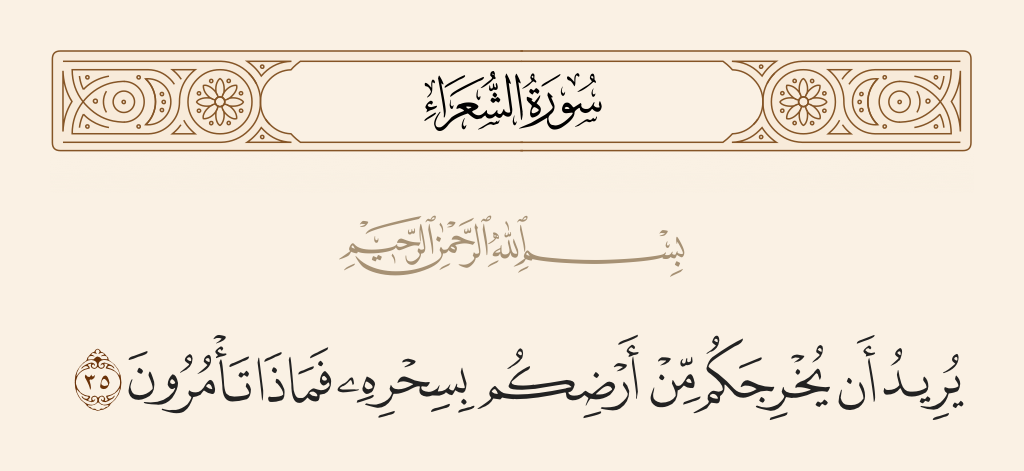 سُورَةُ الشُّعَرَاءِ
بِسْمِ ٱللَّهِ ٱلرَّحْمَٰنِ ٱلرَّحِيمِ
يُرِيدُ أَن يُخْرِجَكُم مِّنْ أَرْضِكُم بِسِحْرِهِۦ فَمَاذَا تَأْمُرُونَ ٣٥